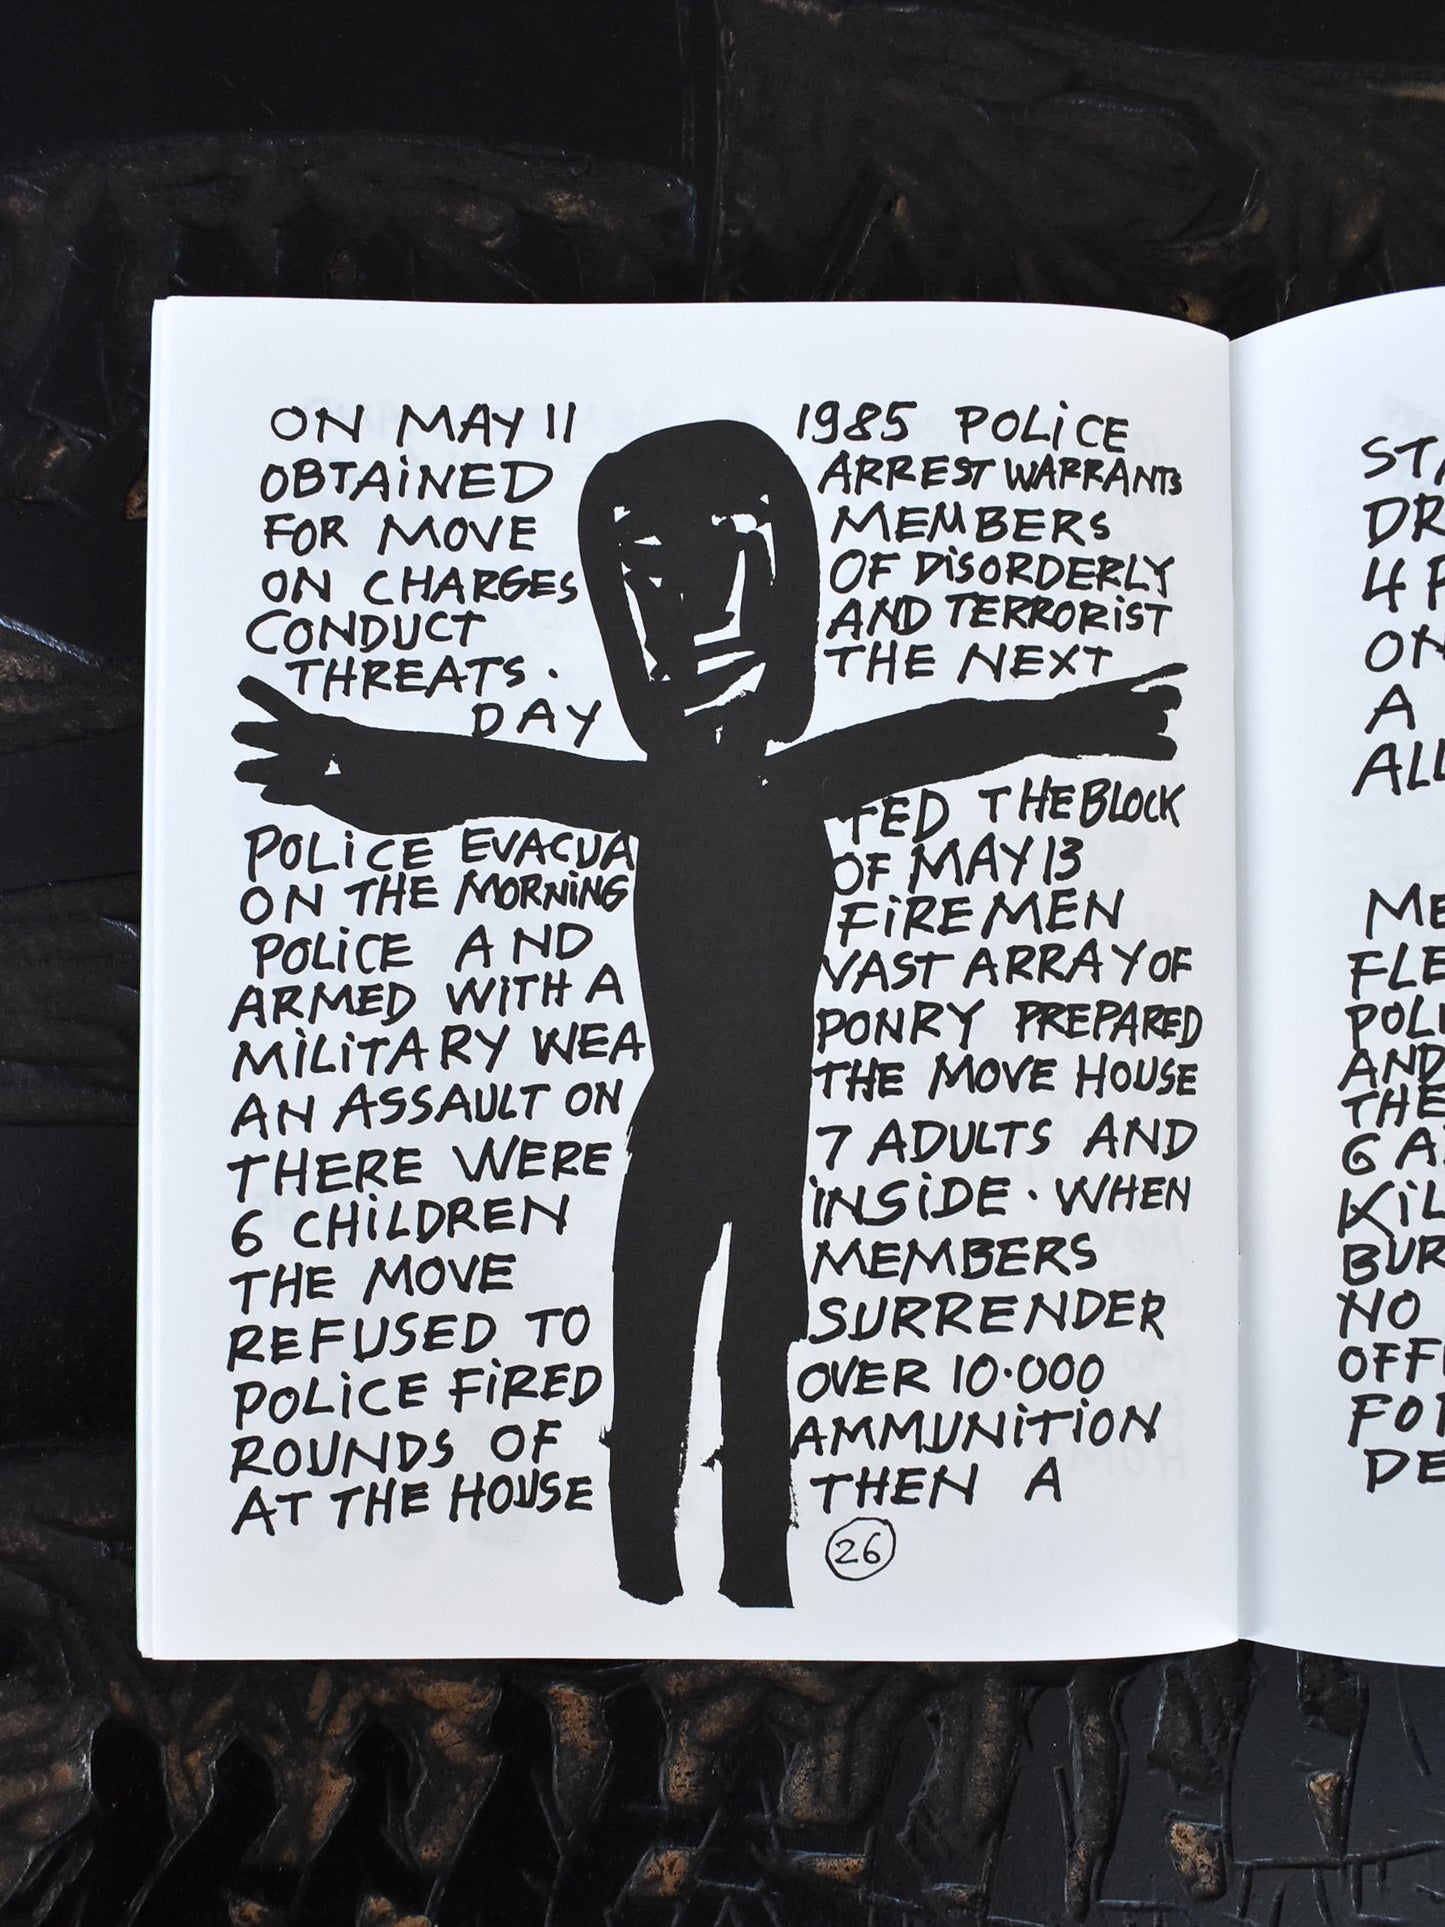 ON MAY 11 1985 POLiCE
OBTAiNED ARREST WARRANTS
FOR MOVE MEMBERS
ON CHARGES OF DiSORDERLY
CONDUCT AND TERRORiST
THREATS. THE NEXT
DAY
POLiCE EVACUA TED THE BLOCK
ON THE MORNiNG OF MAY 13
POLiCE AND FiREMEN
ARMED WiTH A VAST ARRAY OF
MiLiTARY WEA PONRY PREPARED
AN ASSAULT ON THE MOVE HOUSE
THERE WERE 7 ADULTS AND
6 CHiLDREN iNSiDE. WHEN
THE MOVE MEMBERS
REFUSED TO SURRENDER
POLiCE FiRED OVER 10.000
ROUNDS OF AMMUNiTiON
AT THE HOUSE THEN A
26
4
ON
A
6
NO